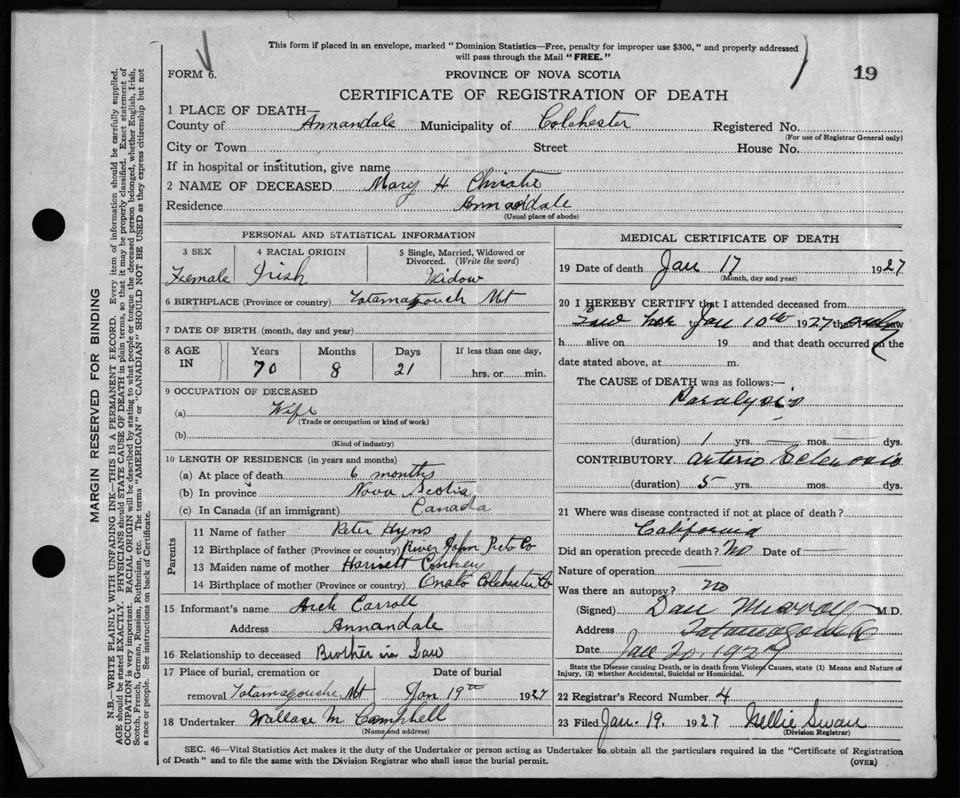 This form if placed in an envelope, marked "Dominion Statistics—Free, penalty for improper use $300," and properly addressed
will pass through the Mail "FREE."
FORM 6.
PROVINCE OF NOVA SCOTIA
19
CERTIFICATE OF REGISTRATION OF DEATH
1 PLACE OF DEATH—
County of Annandale Municipality of Colchester Registered No.
(For use of Registrar General only)
City or Town Street House No.
If in hospital or institution, give name
2 NAME OF DECEASED Mary H. Christie
Residence Annandale
(Usual place of abode)
PERSONAL AND STATISTICAL INFORMATION
3 SEX
Female
4 RACIAL ORIGIN
Irish
5 Single, Married, Widowed or
Divorced. (Write the word)
Widow
6 BIRTHPLACE (Province or country) Tatamagouch Mt
7 DATE OF BIRTH (month, day and year)
8 AGE
IN
Years Months Days
70 8 21
If less than one day,
hrs. or min.
9 OCCUPATION OF DECEASED
(a) Wife
(Trade or occupation or kind of work)
(b)
(Kind of industry)
10 LENGTH OF RESIDENCE (in years and months)
(a) At place of death 6 months
(b) In province Nova Scotia
(c) In Canada (if an immigrant) Canada
Parents
11 Name of father Peter Hyns
12 Birthplace of father (Province or country) River John Picto Co
13 Maiden name of mother Harriett
14 Birthplace of mother (Province or country) Colchester Co
15 Informant's name Arch Carroll
Address Annandale
16 Relationship to deceased Brother in Law
17 Place of burial, cremation or
removal Tatamagouche Mt
Date of burial
Jan 19th 1927
18 Undertaker Wallace M Campbell
(Name and address)
MEDICAL CERTIFICATE OF DEATH
19 Date of death Jan 17 1927
(Month, day and year)
20 I HEREBY CERTIFY that I attended deceased from
Saw her Jan 10th 1927 that only saw
h alive on 19 and that death occurred on the
date stated above, at m.
The CAUSE of DEATH was as follows:—
Paralysis
(duration) 1 yrs. — mos. — dys.
CONTRIBUTORY Arterio Sclerosis
(duration) 5 yrs. mos. dys.
21 Where was disease contracted if not at place of death?
California
Did an operation precede death? No Date of —
Nature of operation —
Was there an autopsy? No
(Signed) Dan Murray M.D.
Address Tatamagouche
Date Jan 20, 1927
State the Disease causing Death, or in death from Violent Causes, state (1) Means and Nature of
Injury, (2) whether Accidental, Suicidal or Homicidal.
22 Registrar's Record Number 4
23 Filed Jan. 19. 1927 Nellie Swan
(Division Registrar)
SEC. 46—Vital Statistics Act makes it the duty of the Undertaker or person acting as Undertaker to obtain all the particulars required in the "Certificate of Registration
of Death" and to file the same with the Division Registrar who shall issue the burial permit.
(OVER)
MARGIN RESERVED FOR BINDING
N.B.—WRITE PLAINLY WITH UNFADING INK—THIS IS A PERMANENT RECORD. Every item of information should be carefully supplied.
AGE should be stated EXACTLY. PHYSICIANS should STATE CAUSE OF DEATH in plain terms, so that it may be properly classified. Exact statement of
OCCUPATION is very important. RACIAL ORIGIN will be described by stating to what people or tongue the deceased person belonged, whether English, Irish,
Scotch, French, German, Russian, Ruthenian, etc. The terms "AMERICAN" or "CANADIAN" SHOULD NOT BE USED as they express citizenship but not
a race or people. See instructions on back of Certificate.